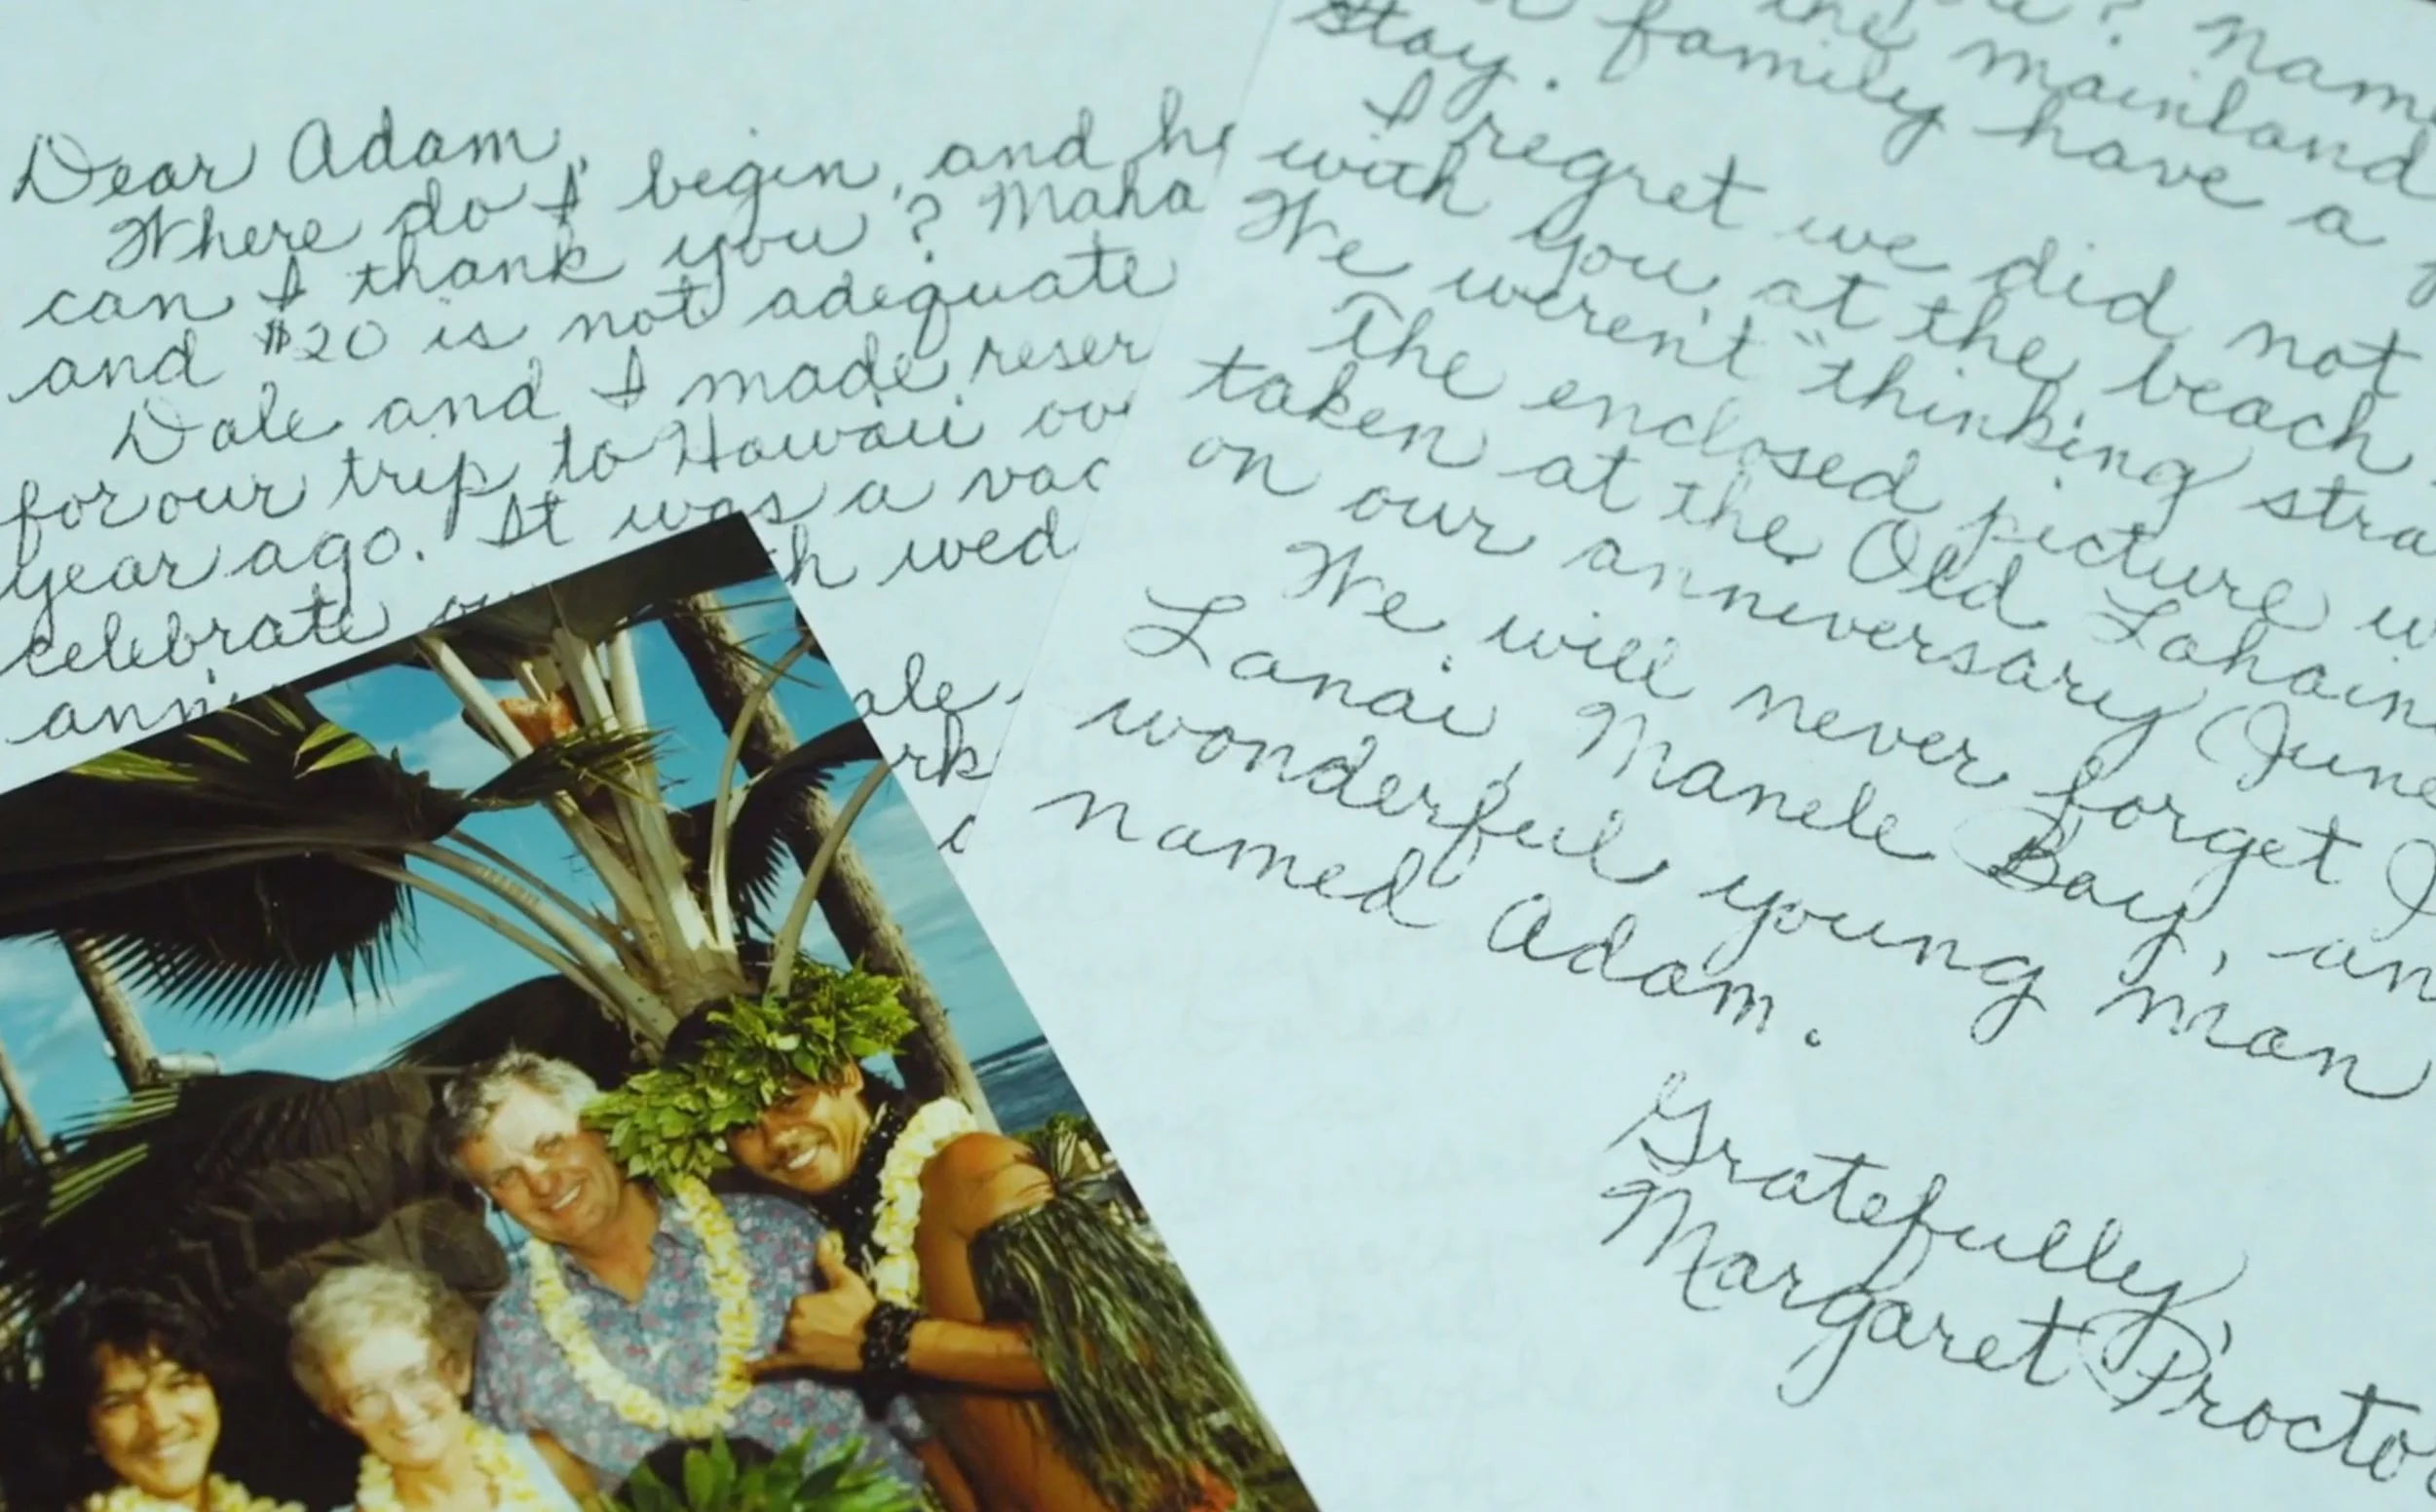 Dear Adam,
Where do I begin, and
can I thank you?
and $20 is not adequate
Dale and I made
for our trip to Hawaii
year ago. It was a
celebrate
you? 
the mainland
stay. family have a
I regret we did not
with you at the beach.
We weren't "thinking
The enclosed picture
taken at the Old
on our anniversary (June
We will never forget
Lanai, Manele Bay,
wonderful young man
named Adam.
Gratefully,
Margaret